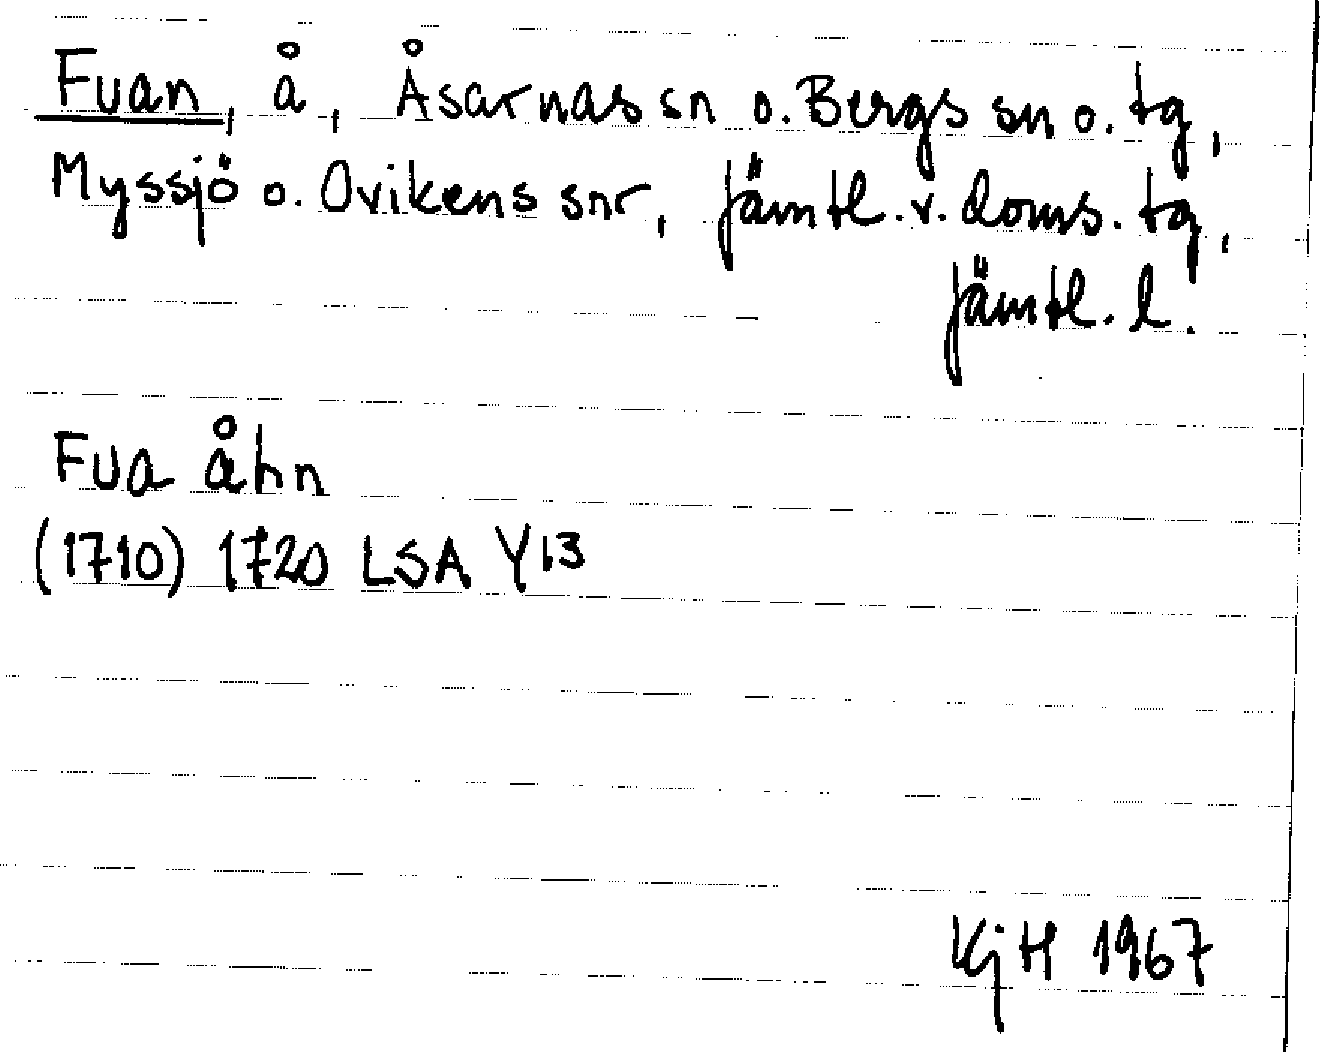 Fuan, å, Åsarnas sn o. Bergs sn o. tg,
Myssjö o. Ovikens snr, Jämtl. v. doms. tg,
Jämtl. l.
Fua åhn
(1710) 1720 LSA Y13
KjH 1967